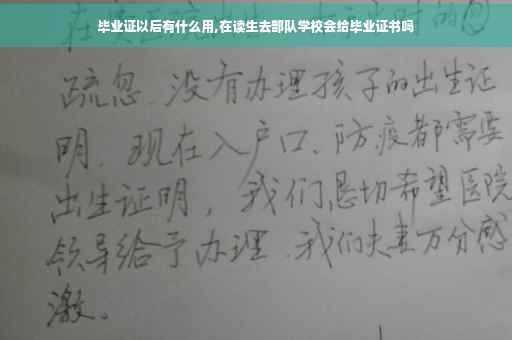 毕业证以后有什么用,在读生去部队学校会给毕业证书吗
疏忽、没有办理孩子的出生证
明、现在入户口、防疫都需要
出生证明，我们恳切希望医院
领导给予办理、我们夫妻万分感
激。